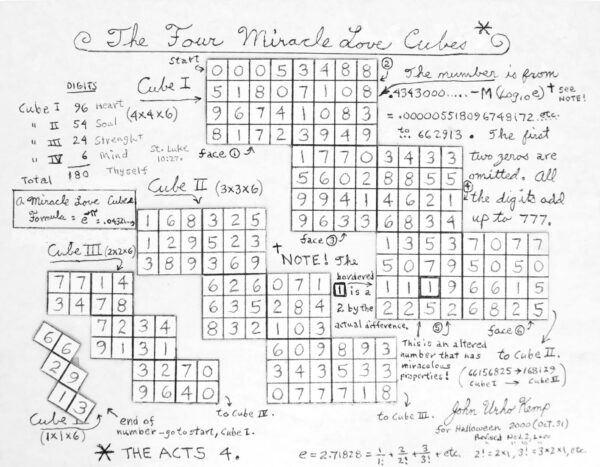 The Four Miracle Love Cubes *
Start
DIGITS
Cube I 96 Heart
" II 54 Soul
" III 24 Strenght
" IV 6 Mind
Total 180 Thyself
St. Luke
10:27.
Cube I
(4x4x6)
0 0 0 5 3 4 8 8
5 1 8 0 7 1 0 8
9 6 7 4 1 0 8 3
8 1 7 2 3 9 4 9
face ①
②
The number is from
.4343000.....-M(Log₁₀e) † see
NOTE!
= .0000055180967 48172 etc.
to ... 662913. The first
two zeros are
omitted. All
the digits add
up to 777.
1 7 7 0 3 4 3 3
5 6 0 2 8 8 5 5
9 9 4 1 4 6 2 1
9 6 3 3 6 8 3 4
face ③
④
1 3 5 3 7 0 7 7
5 0 7 9 5 0 5 0
1 1 1 9 6 6 1 5
2 2 5 2 6 8 2 5
⑤
face ⑥
to Cube II.
(66156825→168129
Cube I Cube II)
A Miracle Love Cubes
Formula = e^-π = .0432
Cube II (3x3x6)
1 6 8 3 2 5
1 2 9 5 2 3
3 8 9 3 6 9
6 2 6 0 7 1
6 3 5 2 8 4
8 3 2 1 0 3
6 0 9 8 9 3
3 4 3 5 3 3
0 7 7 7 1 8
to Cube III.
†
NOTE! The
bordered
1 is a
2 by the
actual difference.
This is an altered
number that has
miraculous
properties!
Cube III (2x2x6)
7 7 1 4
3 4 7 8
7 2 3 4
9 1 3 1
3 2 7 0
9 6 4 0
to Cube IV.
6 6
2 9
1 3
Cube IV
(1x1x6)
end of
number-go to start, Cube I.
* THE ACTS 4.
John Urho Kemp
for Halloween 2000 (Oct. 31)
Revised Nov. 2, 2000
e = 2.71828 = 1/1! + 2/2! + 3/3! + etc. 2! = 2x1, 3! = 3x2x1, etc.